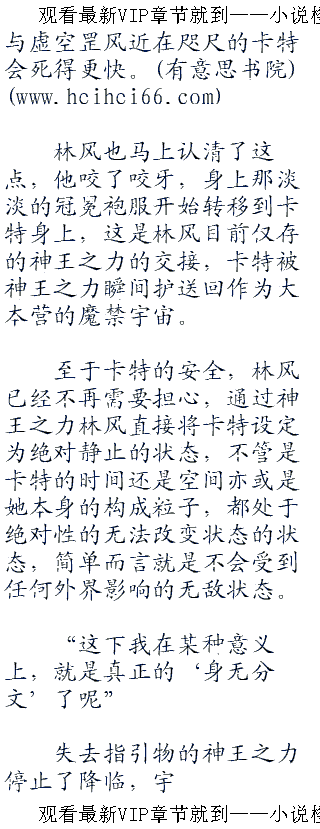 观看最新VIP章节就到——小说检
与虚空罡风近在咫尺的卡特
会死得更快。(有意思书院)
(www.hcihci66.com)
林风也马上认清了这
点，他咬了咬牙，身上那淡
淡的冠冕袍服开始转移到卡
特身上，这是林风目前仅存
的神王之力的交接，卡特被
神王之力瞬间护送回作为大
本营的魔禁宇宙。
至于卡特的安全，林风
已经不再需要担心，通过神
王之力林风直接将卡特设定
为绝对静止的状态，不管是
卡特的时间还是空间亦或是
她本身的构成粒子，都处于
绝对性的无法改变状态的状
态，简单而言就是不会受到
任何外界影响的无敌状态。
“这下我在某种意义
上，就是真正的‘身无分
文’了呢”
失去指引物的神王之力
停止了降临，宇
观看最新VIP章节就到——小说检